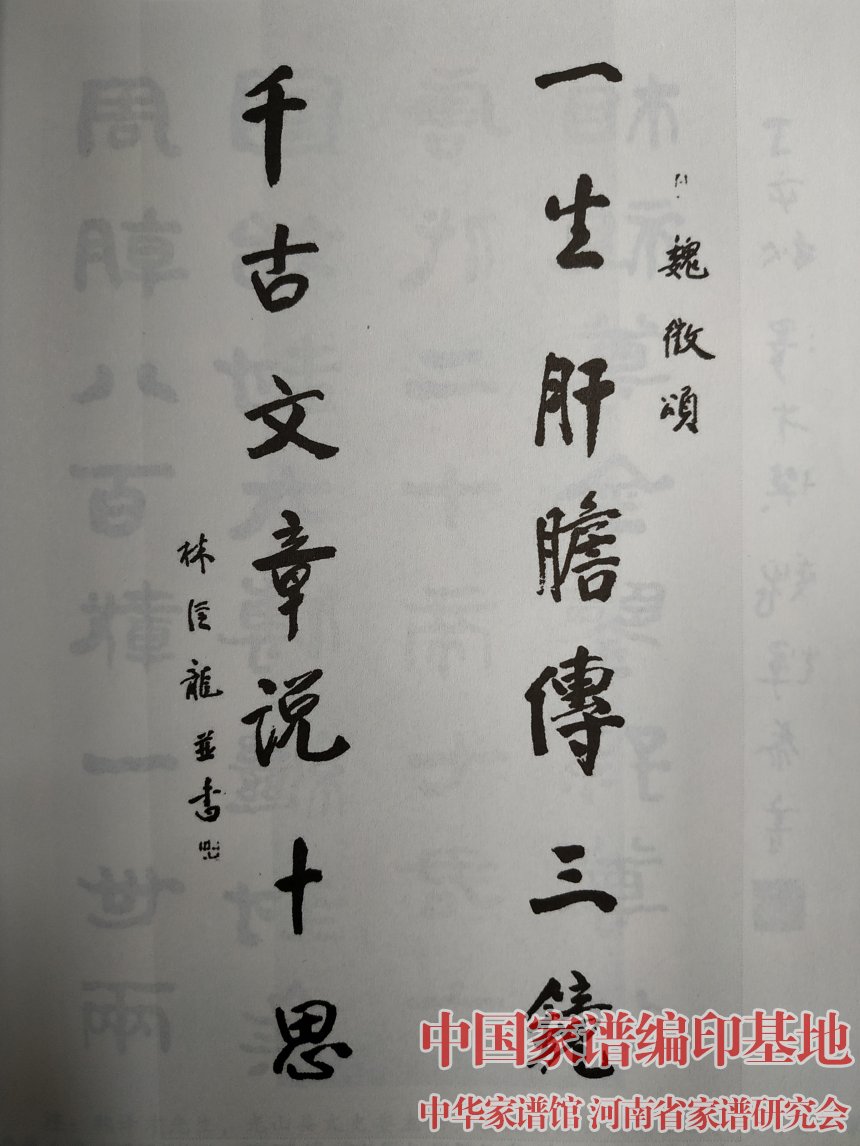 魏徵頌
一生肝膽傳三鏡
千古文章说十思
林從龍並书
中国家谱编印基地
中华家谱馆 河南省家谱研究会